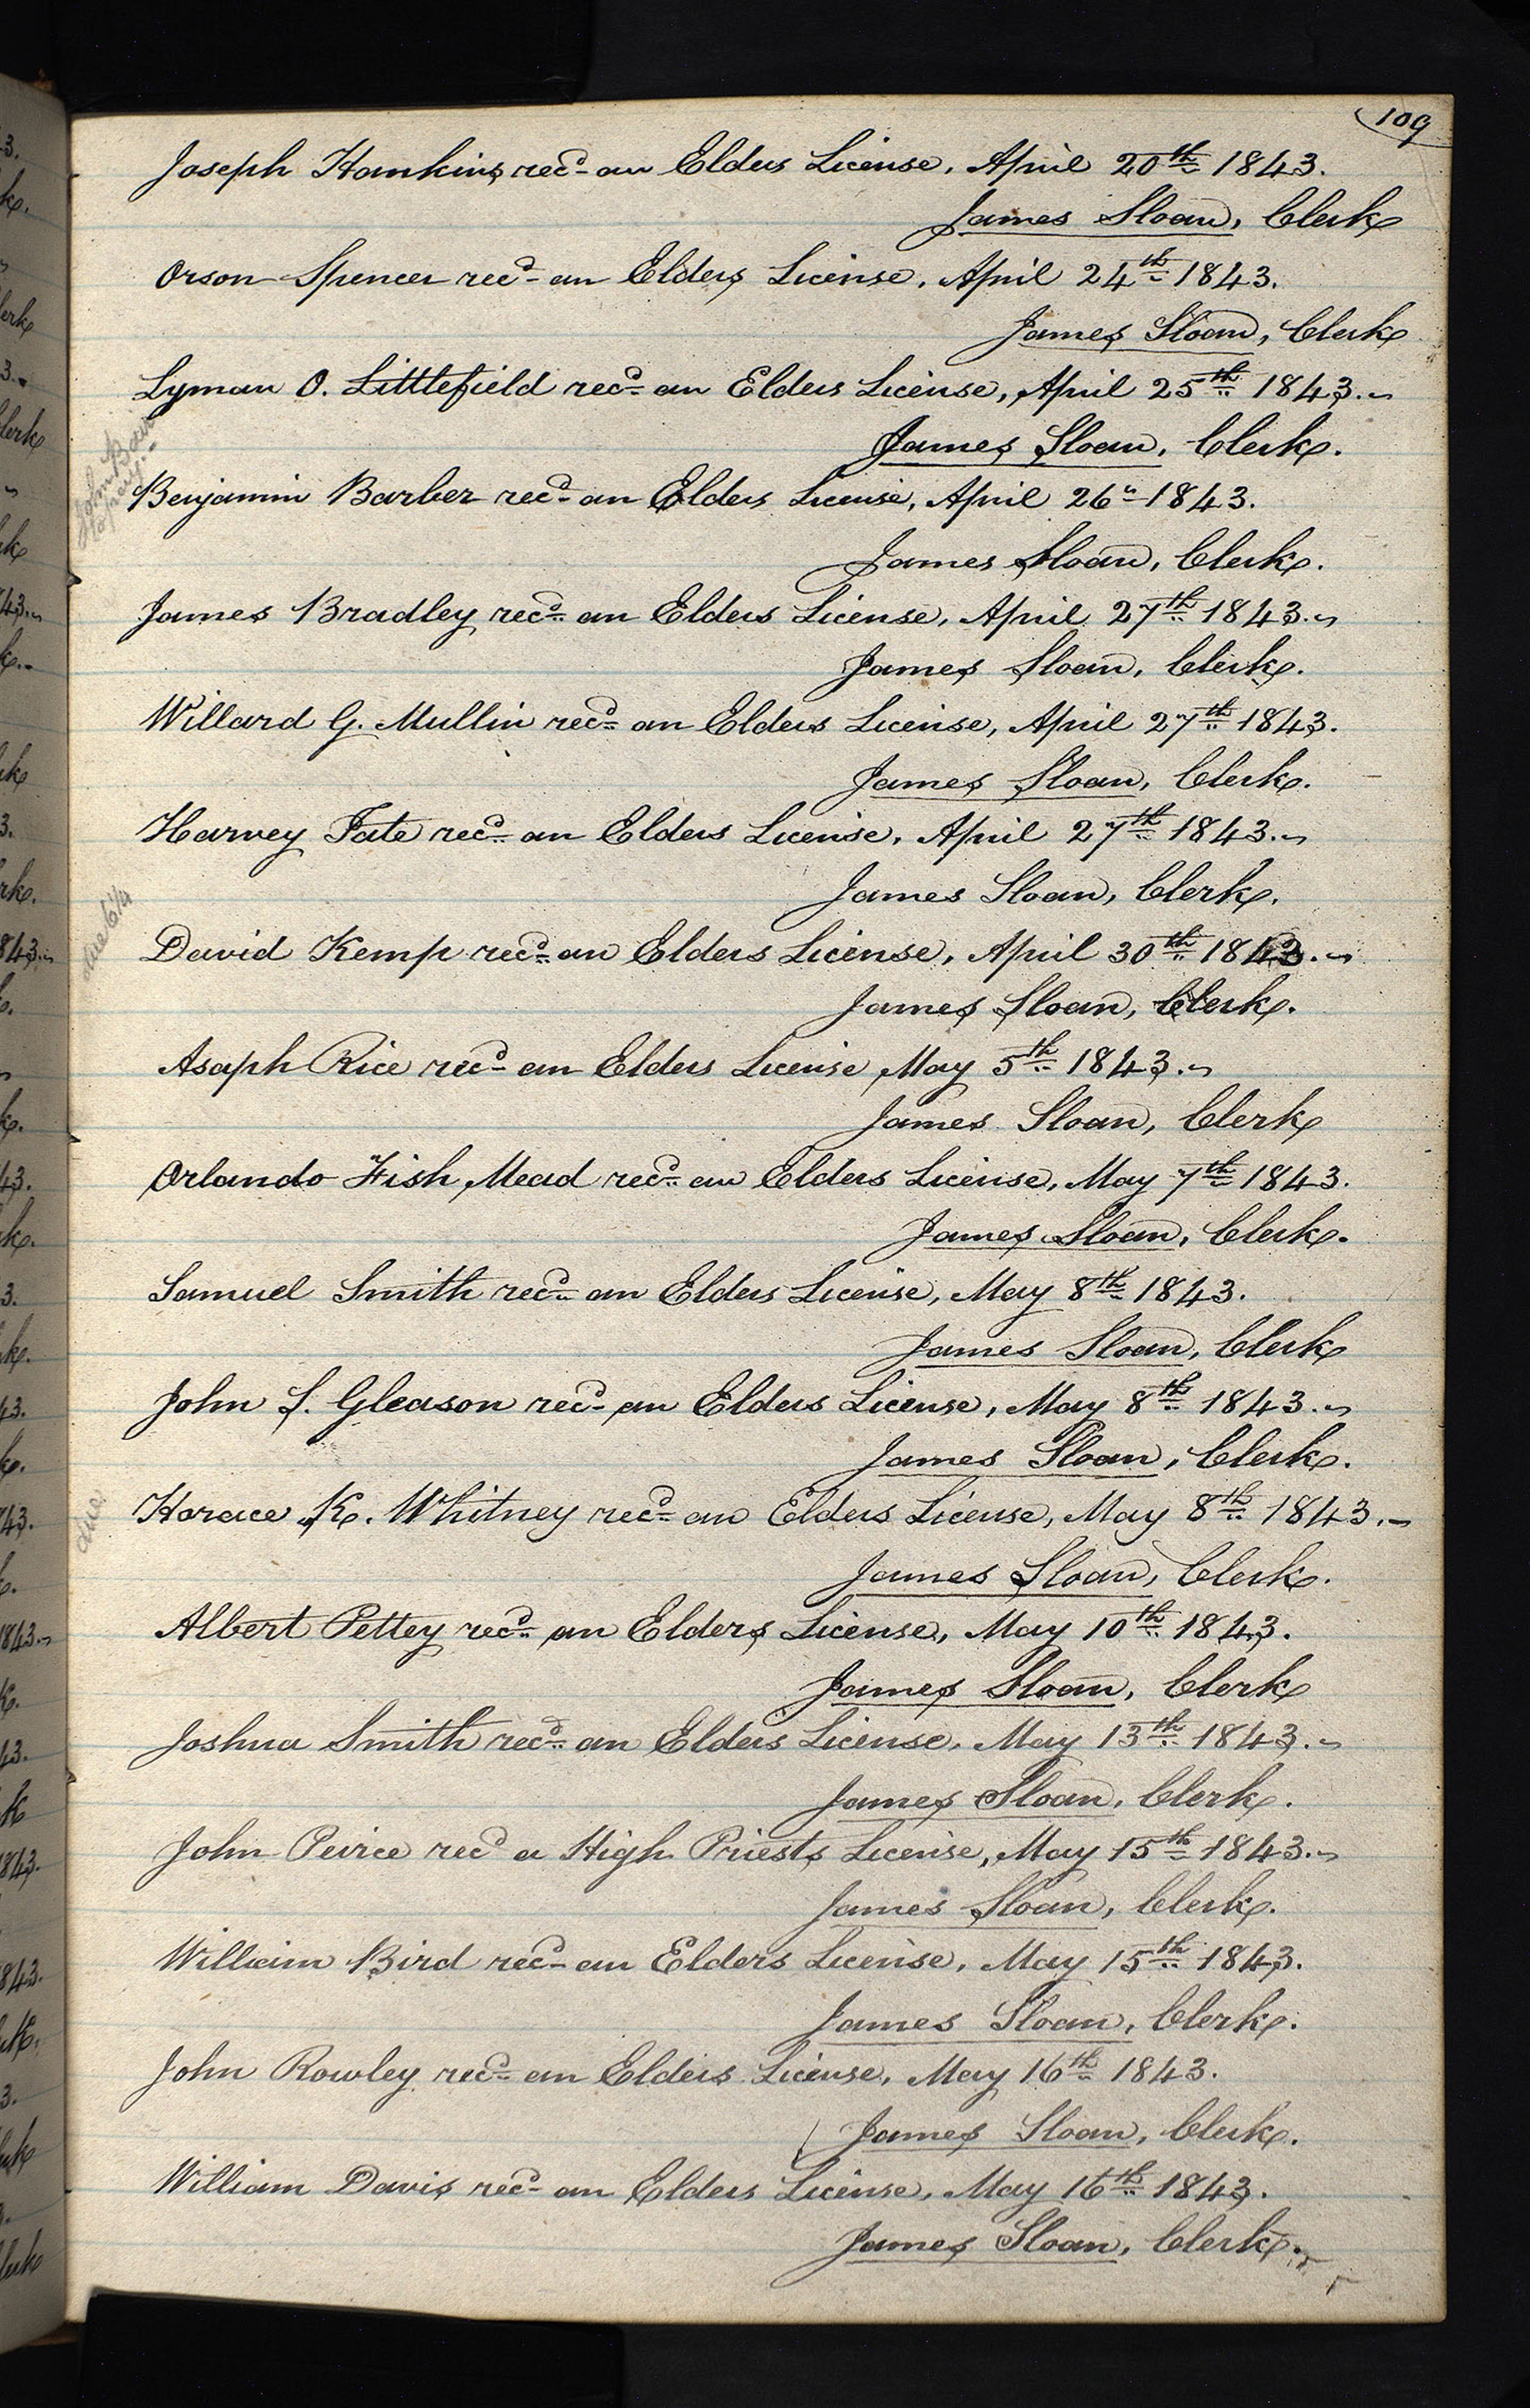 109
Joseph Hawkins recd. an Elders License, April 20th 1843.
James Sloan, Clerk
Orson Spencer recd. an Elders License, April 24th 1843.
James Sloan, Clerk
Lyman O. Littlefield recd. an Elders License, April 25th 1843.
James Sloan, Clerk.
Benjamin Barber recd. an Elders License, April 26" 1843.
James Sloan, Clerk.
James Bradley recd. an Elders License, April 27th 1843.
James Sloan, Clerk.
Willard G. Mullin recd. an Elders License, April 27th 1843.
James Sloan, Clerk.
Harvey Tate recd. an Elders License, April 27th 1843.
James Sloan, Clerk.
due 6¼
David Kemp recd. an Elders License, April 30th 1843.
James Sloan, Clerk.
Asaph Rice recd. an Elders License May 5th 1843.
James Sloan, Clerk
Orlando Fish Mead recd. an Elders License, May 7th 1843.
James Sloan, Clerk.
Samuel Smith recd. an Elders License, May 8th 1843.
James Sloan, Clerk
John S. Gleason recd. an Elders License, May 8th 1843.
James Sloan, Clerk.
due
Horace K. Whitney recd. an Elders License, May 8th 1843.
James Sloan, Clerk.
Albert Pettey recd. an Elders License, May 10th 1843.
James Sloan, Clerk
Joshua Smith recd. an Elders License, May 13th 1843.
James Sloan, Clerk.
John Peirce recd a High Priests License, May 15th 1843.
James Sloan, Clerk.
William Bird recd. an Elders License, May 15th 1843.
James Sloan, Clerk.
John Rowley recd. an Elders License, May 16th 1843.
James Sloan, Clerk.
William Davis recd. an Elders License, May 16th 1843.
James Sloan, Clerk.